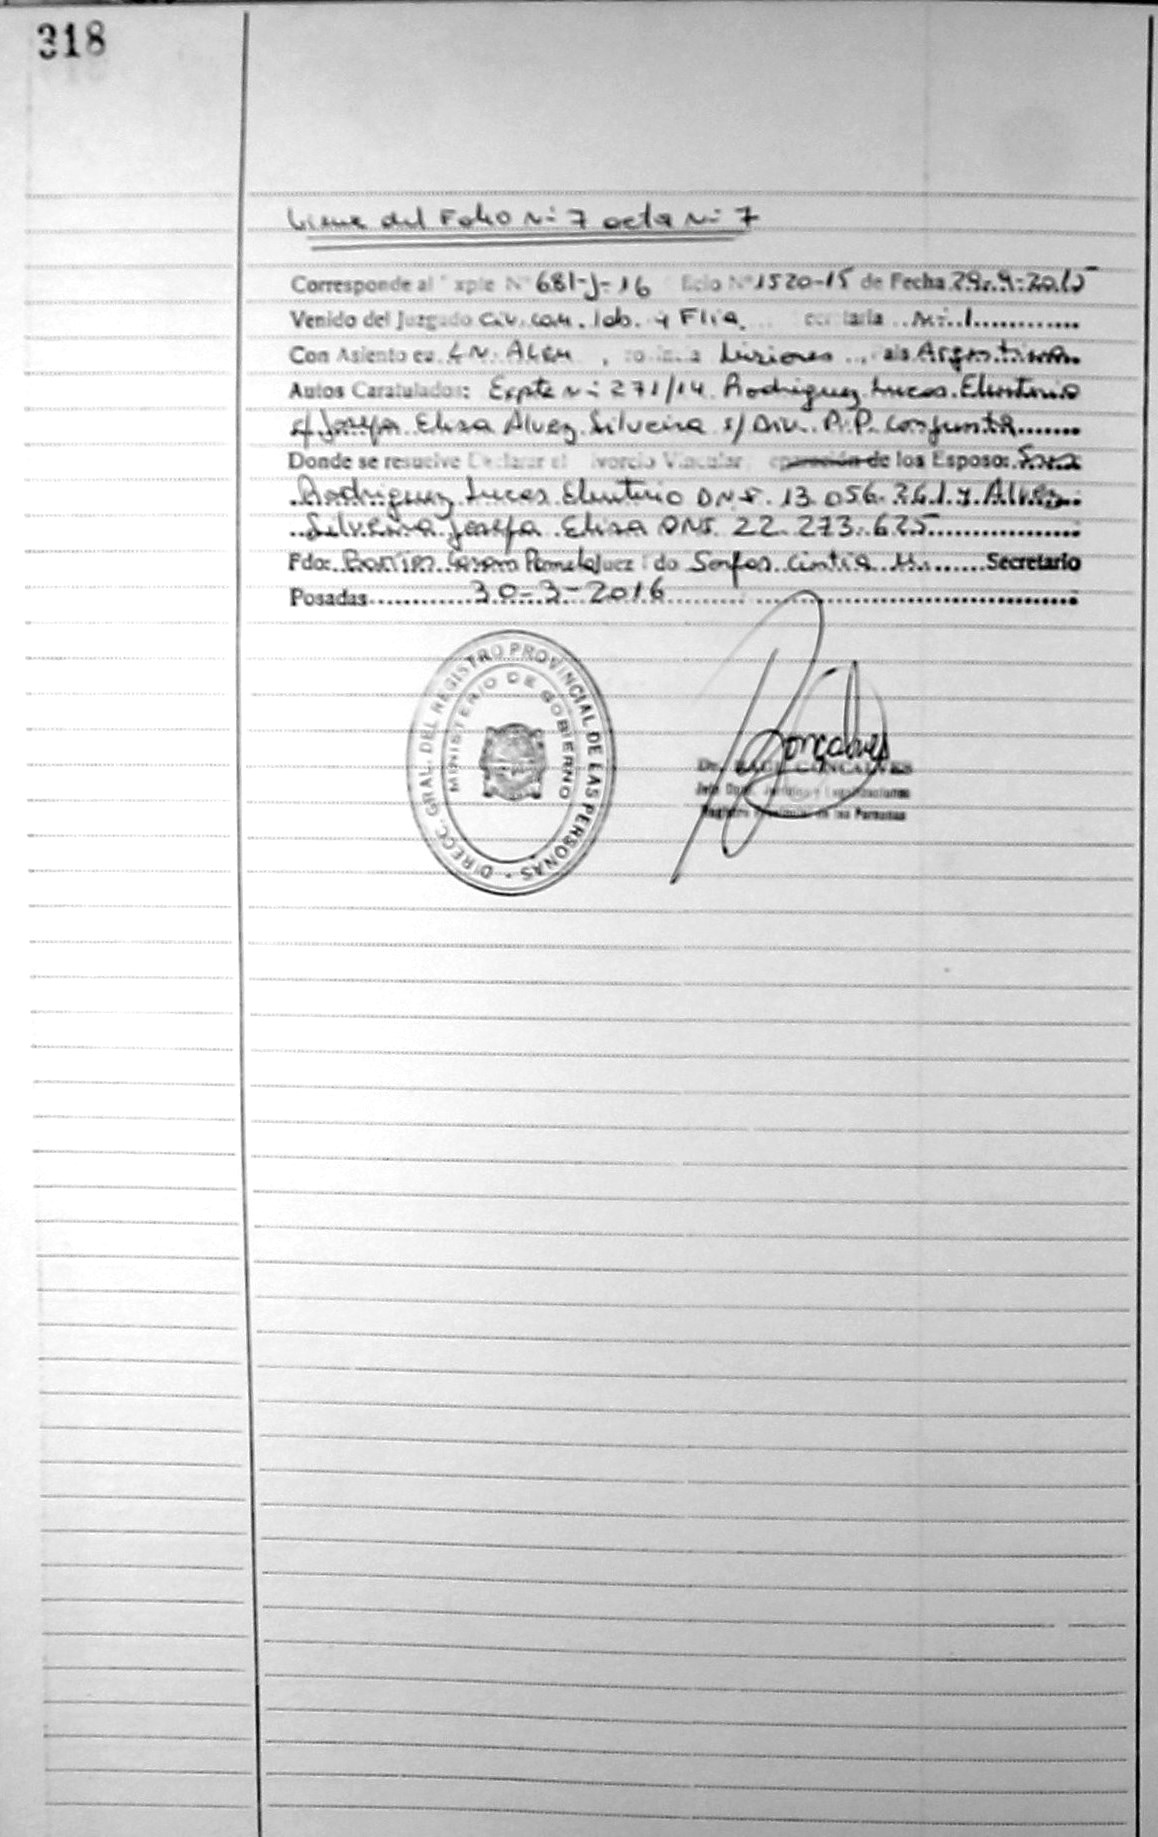 318
Viene del Folio Nº 7 acta Nº 7
Corresponde al Expte Nº 681-J-16 Nº 1520-15 de Fecha 29-9-2015
Venido del Juzgado Civ. Com. lab. y Flia. Secretaria Nº 1
Con Asiento en L.N. Alem, Provincia Misiones, Pais Argentina
Autos Caratulados: Expte Nº 271/14 Rodriguez Lucas Eleuterio
c/ Josefa Elisa Alvez Silveira s/ Div. P.P. Conjunta
Donde se resuelve Declarar el Divorcio Vincular, separación de los Esposos
Rodriguez Lucas Eleuterio DNI. 13.056.261 y Alvez
Silveira Josefa Elisa DNI. 22.273.625
Fdo: Juez Fdo Cintia Secretario
Posadas 30-3-2016
DIRECC. GRAL. DEL REGISTRO PROVINCIAL DE LAS PERSONAS
MINISTERIO DE GOBIERNO
Gonçalves
Dr. GONCALVES
Registro Provincial de las Personas